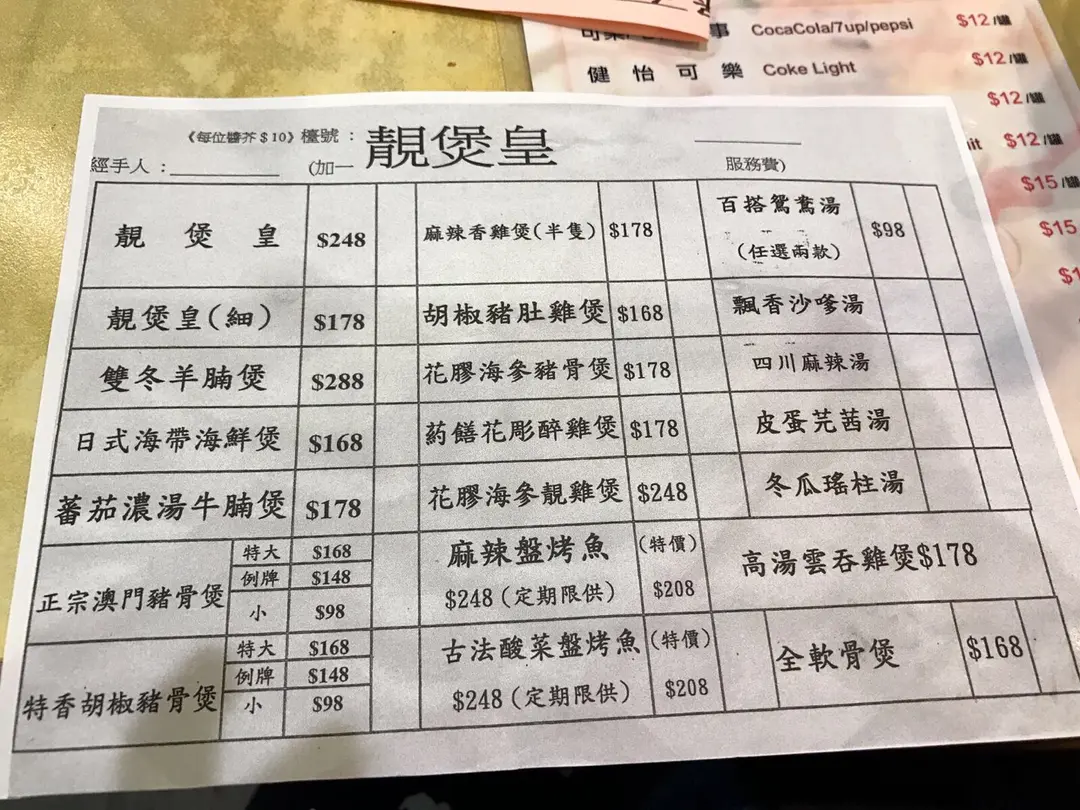 事 CocaCola/7up/pepsi $12/罐
健 怡 可 樂 Coke Light $12/罐
$12/罐
$12/罐
$15/罐
$15
《每位醬芥$10》檯號：
靚煲皇
經手人：
(加一
服務費)
靚 煲 皇 $248 麻辣香雞煲(半隻) $178 百搭鴛鴦湯 $98
(任選兩款)
靚煲皇(細) $178 胡椒豬肚雞煲 $168 飄香沙嗲湯
雙冬羊腩煲 $288 花膠海參豬骨煲 $178 四川麻辣湯
日式海帶海鮮煲 $168 葯饍花彫醉雞煲 $178 皮蛋芫茜湯
蕃茄濃湯牛腩煲 $178 花膠海參靚雞煲 $248 冬瓜瑤柱湯
正宗澳門豬骨煲
特大 $168
例牌 $148
小 $98
麻辣盤烤魚 (特價)
$248(定期限供) $208
高湯雲吞雞煲$178
特香胡椒豬骨煲
特大 $168
例牌 $148
小 $98
古法酸菜盤烤魚 (特價)
$248(定期限供) $208
全軟骨煲 $168